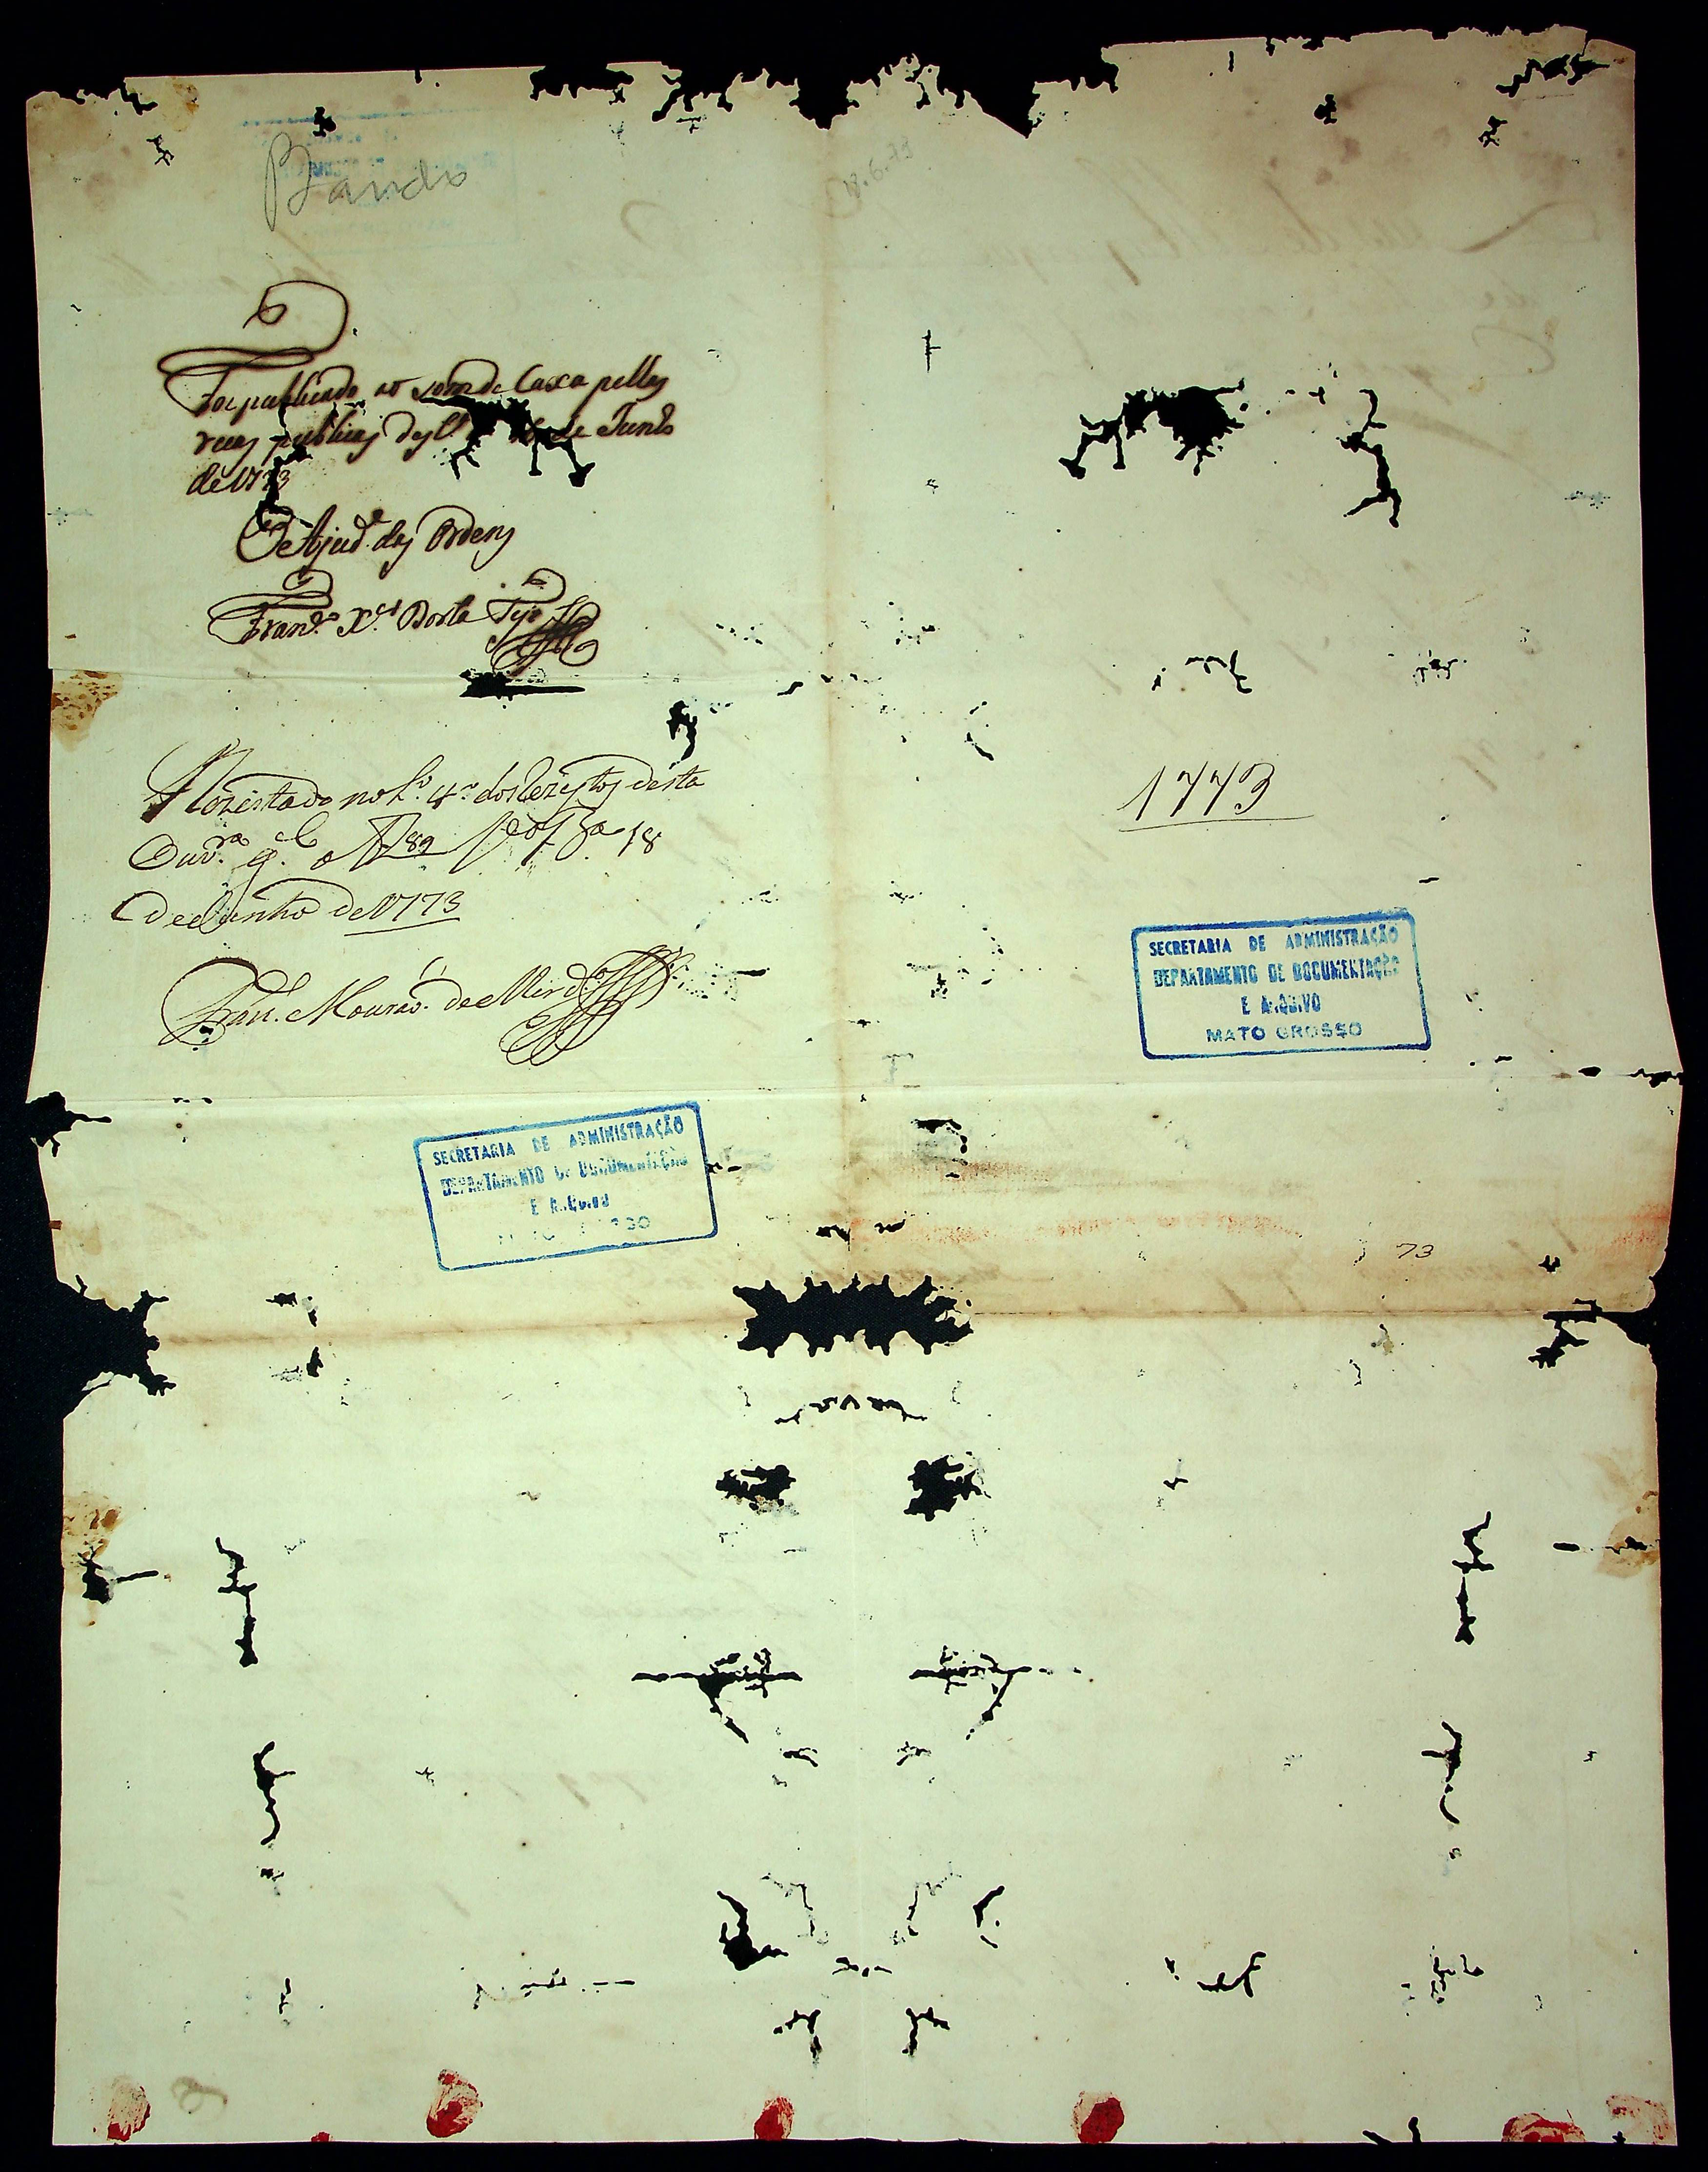 Bando
18.6.73
Foi publicado ao som de Caxa pellas
ruas publicas des de Junho
de 1773
O Ajud.e das Ordens
Fran.co X.er Dorta Tejo
Rezistado no L.o 4.o dos Rezistos desta
Ouv.ra g.el a f 89 18
de Junho de 1773
Fran. Mourão de
1773
SECRETARIA DE ADMINISTRAÇÃO
DEPARTAMENTO DE DOCUMENTAÇÃO
E ARQUIVO
MATO GROSSO
SECRETARIA DE ADMINISTRAÇÃO
DEPARTAMENTO DE DOCUMENTAÇÃO
E ARQUIVO
73